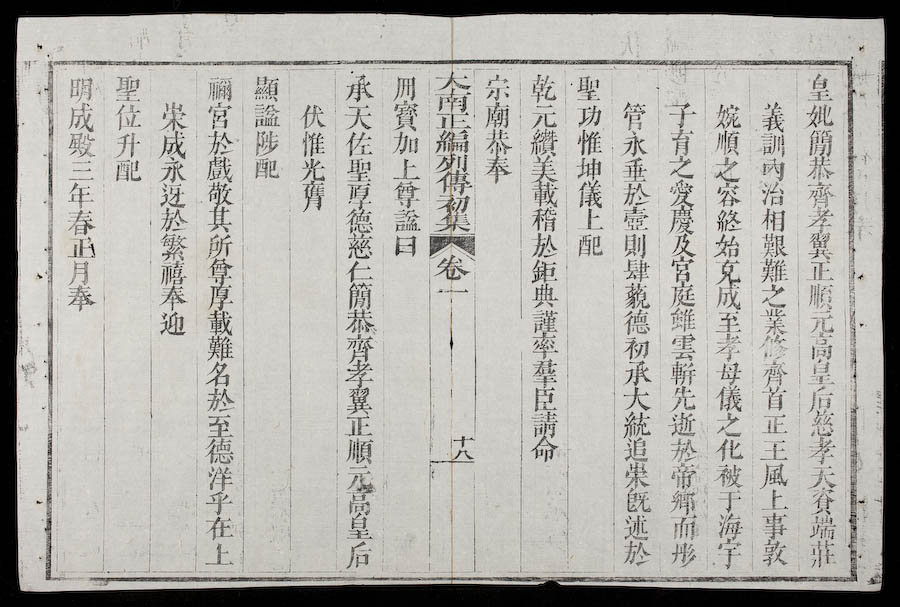 皇妣簡恭齊孝翼正順元高皇后慈孝天資端莊
義訓內治相艱難之業修齊首正王風上事敦
婉順之容終始克成至孝母儀之化被于海宇
子育之愛慶及宮庭雖雲軿先逝於帝鄉而彤
管永垂於壼則肆藐德初承大統追崇旣述於
聖功惟坤儀上配
乾元纘美載稽於鉅典謹率羣臣請命
宗廟恭奉
大南正編列傳初集 卷一 十八
冊寶加上尊謚曰
承天佐聖厚德慈仁簡恭齊孝翼正順元高皇后
伏惟光膺
顯謚陟配
禰宮於戲敬其所尊厚載難名於至德洋乎在上
崇成永迓於繁禧奉迎
聖位升配
明成殿三年春正月奉